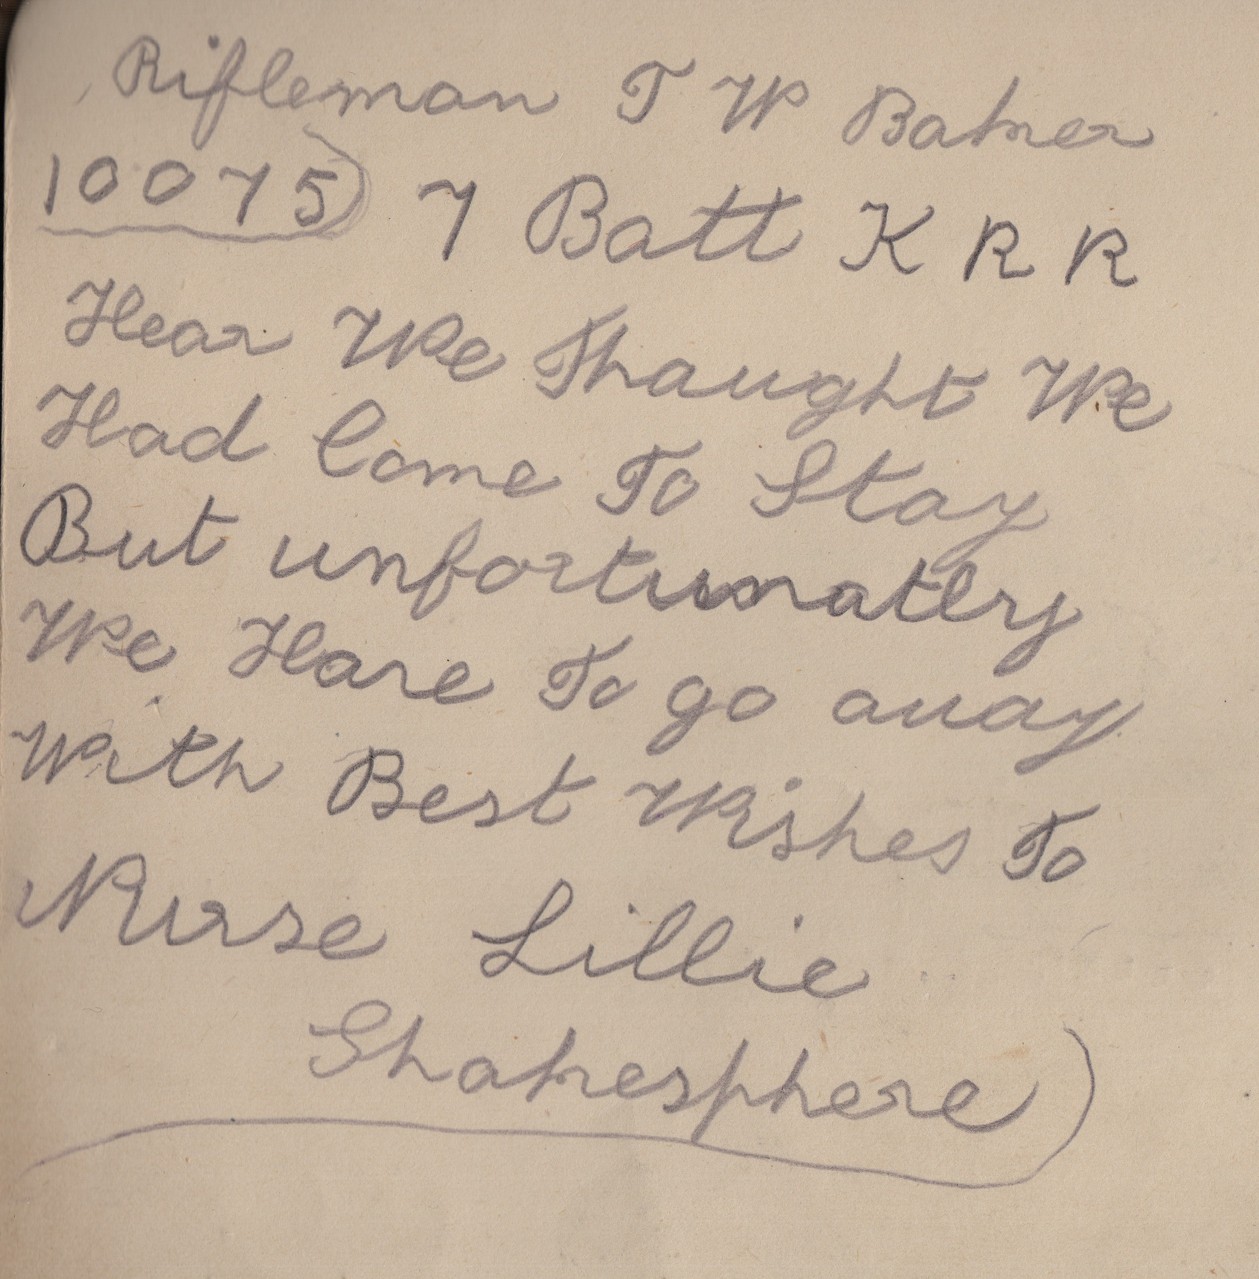 Rifleman T W Baker
10075) 7 Batt K R R
Hear We Thaught We
Had Come To Stay
But unfortunatley
We Have To go away
With Best Wishes To
Nurse Lillie
Shakesphere)